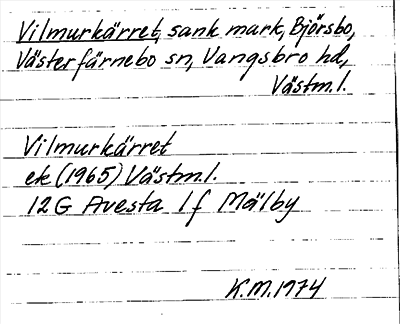 Vilmurkärret, sank mark, Björsbo,
Västerfärnebo sn, Vangsbro hd,
Västm.l.
Vilmurkärret
ek (1965) Västm.l.
12G Avesta 1f Mälby
K.M. 1974